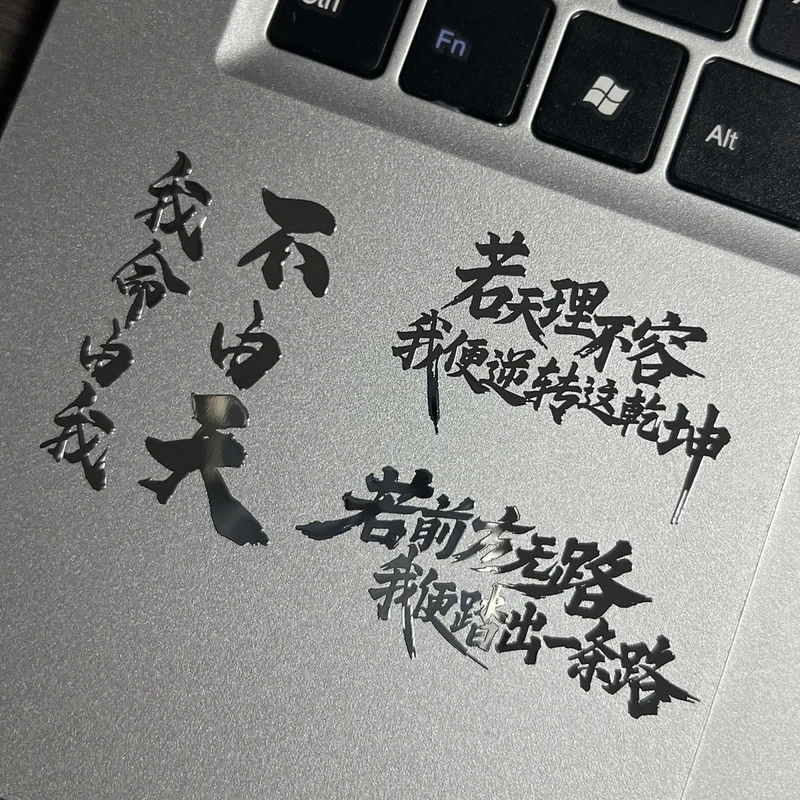 Ctrl
Fn
Alt
我命由我
不由天
若天理不容
我便逆转这乾坤
若前方无路
我便踏出一条路